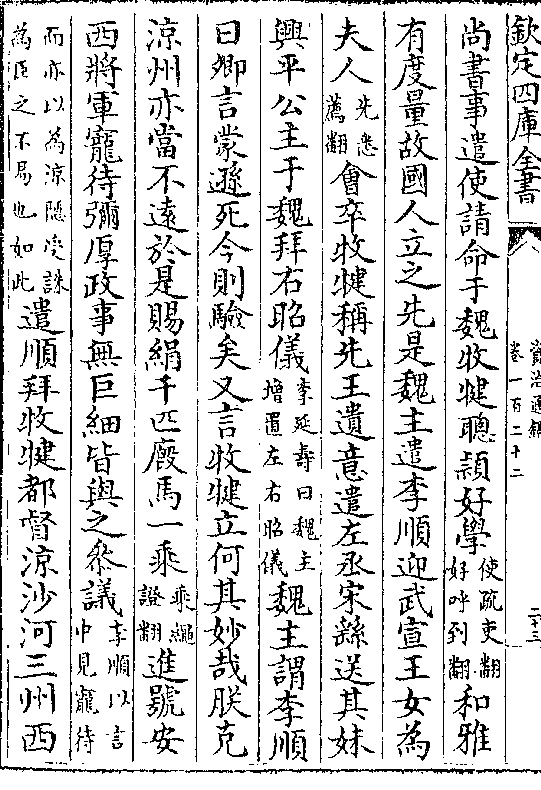 欽定四庫全書
資治通鑑
卷一百二十二
二十三
尚書事遣使請命于魏牧犍聰穎好學使疏吏翻好呼到翻和雅
有度量故國人立之先是魏主遣李順迎武宣王女為
夫人先悉薦翻會卒牧犍稱先王遺意遣左丞宋繇送其妹
興平公主于魏拜右昭儀李延壽曰魏主增置左右昭儀魏主謂李順
曰卿言蒙遜死今則驗矣又言牧犍立何其妙哉朕克
涼州亦當不遠於是賜絹千匹廐馬一乘乘繩證翻進號安
西將軍寵待彌厚政事無巨細皆與之參議李順以言中見寵待
而亦以為涼隱受誅為臣之不易也如此遣順拜牧犍都督涼沙河三州西